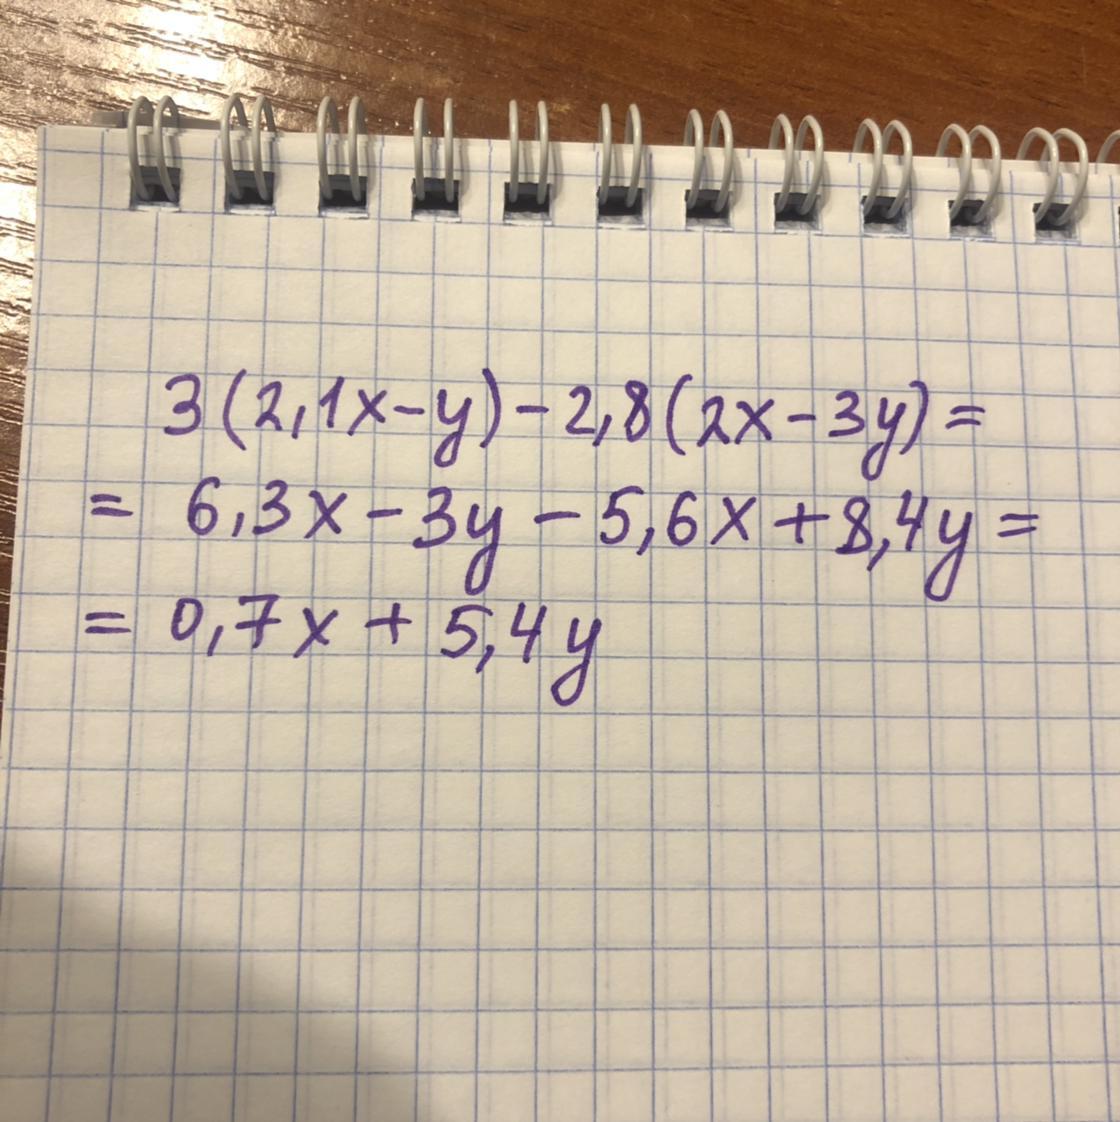 3(2,1x-y)-2,8(2x-3y)=
= 6,3x-3y-5,6x+8,4y=
= 0,7x+5,4y